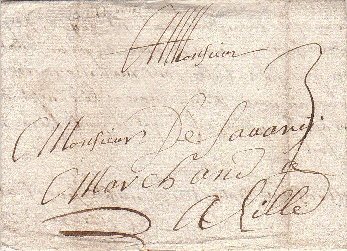 Monsieur
Monsieur De Savary
Marchand
A Lille